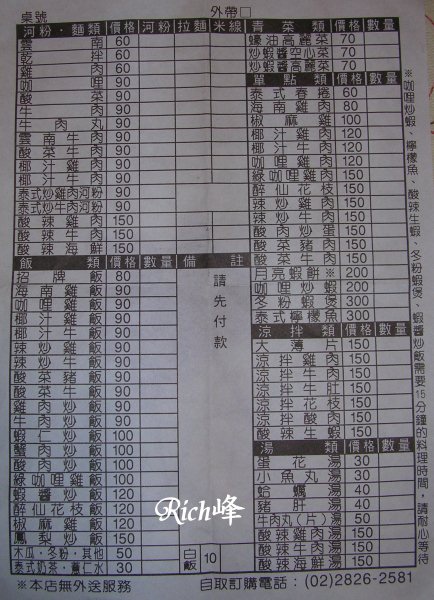 桌號 外帶□
河粉、麵類 價格 河粉 拉麵 米線
雲南 60
乾拌 60
雞肉 60
咖哩 90
酸菜 90
牛肉 90
牛肉丸 90
雲南牛肉 90
酸菜牛肉 90
椰汁雞肉 90
椰汁牛肉 90
泰式炒雞肉河粉 90
泰式炒牛肉河粉 90
酸辣雞肉 150
酸辣牛肉 150
酸辣海鮮 150
飯類 價格 數量 備註
招牌飯 80
海南雞飯 90
咖哩雞飯 90
椰汁雞飯 90
椰汁牛飯 90
辣炒雞飯 90
辣炒牛飯 90
酸菜豬飯 90
酸菜牛飯 90
雞肉炒飯 90
牛肉炒飯 90
蝦仁炒飯 100
蟹肉炒飯 100
魚肉炒飯 100
綠咖哩雞飯 100
蝦醬炒飯 120
醉仙花枝飯 120
椒麻雞飯 120
鳳梨炒飯 150
木瓜、冬粉、其他 50
泰式奶茶、薏仁水 30
白飯 10
請先付款
青菜類 價格 數量
蠔油高麗菜 70
炒蝦醬空心菜 70
炒蝦醬高麗菜 70
單點類 價格 數量
泰式春捲 60
海南雞肉 80
椒麻雞 100
椰汁雞肉 120
椰汁牛肉 120
咖哩雞肉 120
綠咖哩雞肉 150
醉仙花枝 150
辣炒雞肉 150
辣炒牛肉 150
酸肉炒蛋 150
酸菜豬肉 150
酸菜牛肉 150
月亮蝦餅※ 200
咖哩炒蝦 200
冬粉蝦煲 300
泰式檸檬魚 300
涼拌類 價格 數量
大薄片 150
涼拌雞肉 150
涼拌牛肉 150
涼拌牛肚 150
涼拌花枝 150
涼拌酸肉 150
酸辣生蝦 150
湯類 價格 數量
蛋花湯 30
小魚丸湯 30
蛤蠣湯 40
豬肝湯 40
牛肉丸(片)湯 50
酸辣雞肉湯 150
酸辣牛肉湯 150
酸辣海鮮湯 150
※咖哩炒蝦、檸檬魚、酸辣生蝦、冬粉蝦煲、蝦醬炒飯需要15分鐘的料理時間，請耐心等待
Rich峰
※本店無外送服務 自取訂購電話：(02)2826-2581